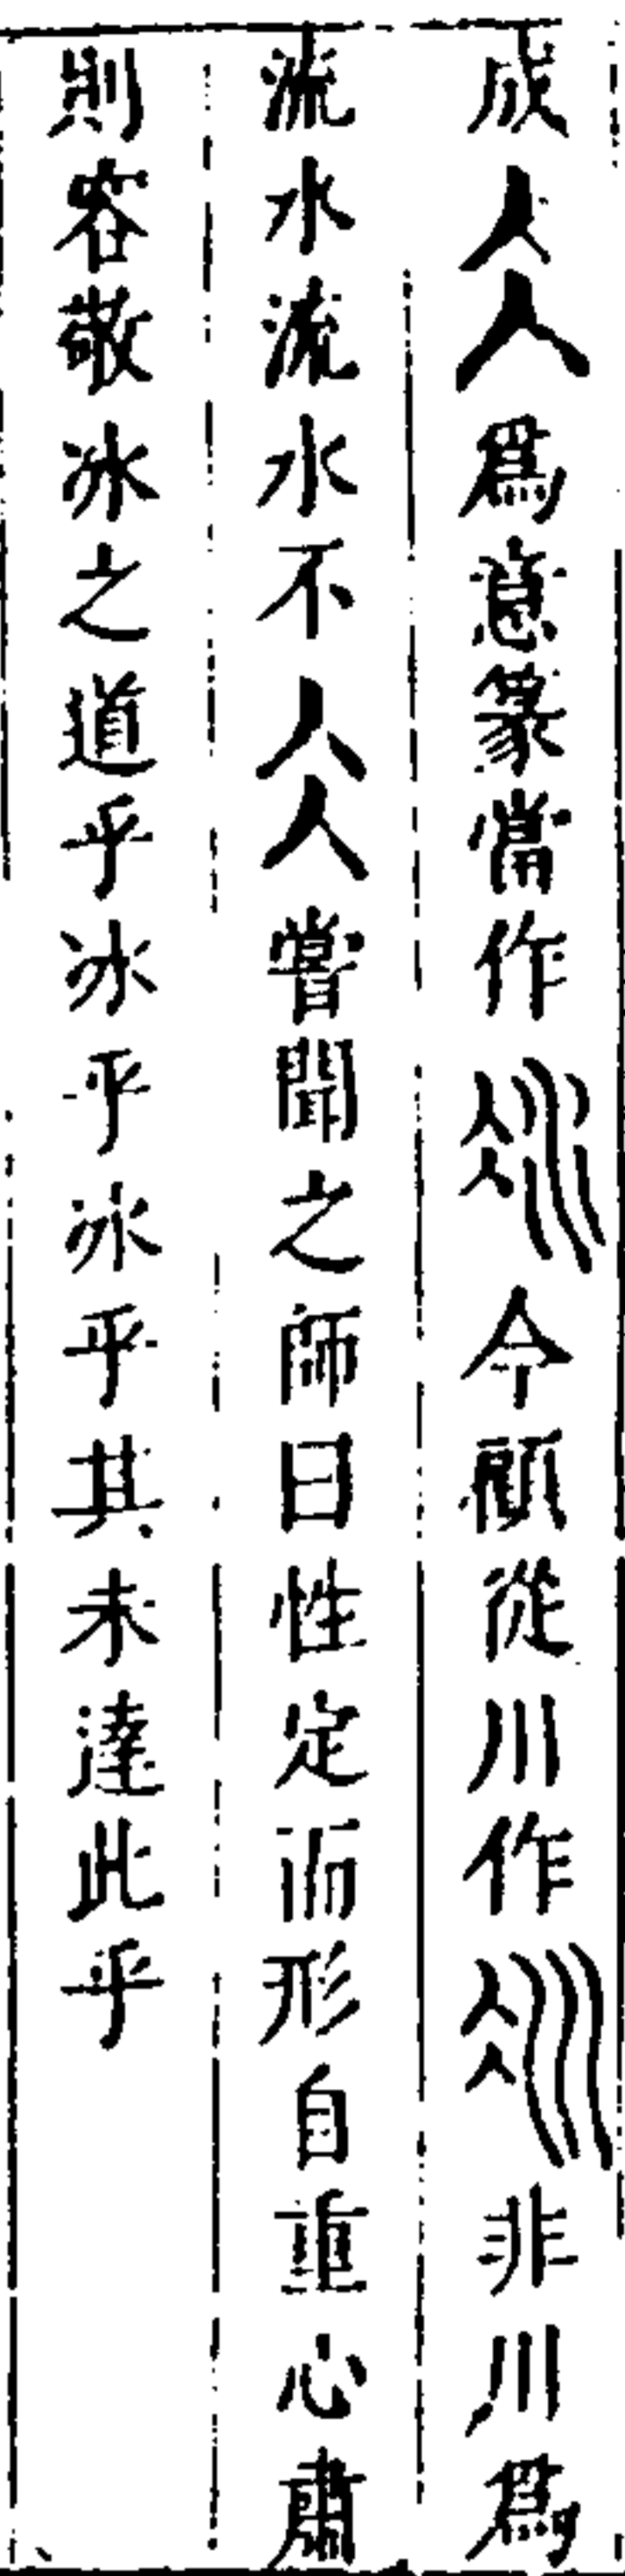 成仌爲意篆當作𣲝今顧從川作㳄非川爲
流水流水不仌嘗聞之師曰性定而形自重心肅
則容敬冰之道乎冰乎冰乎其未達此乎